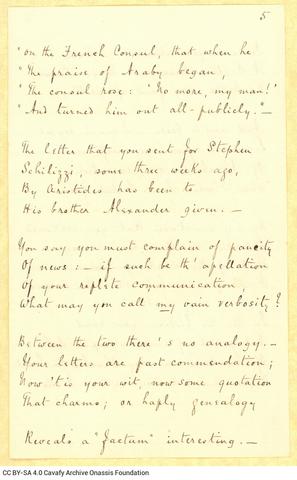 5
"on the French Consul, that when he
"The praise of Araby began,
"The consul rose: 'No more, my man!'
"And turned him out all-publicly." —
The letter that you sent for Stephen
Schilizzi, some three weeks ago,
By Aristides has been to
His brother Alexander given. —
You say you must complain of paucity
Of news: — if such be th' apellation
Of your replete communication,
What may you call my vain verbosity?
Between the two there's no analogy. —
Your letters are past commendation;
Now 'tis your wit, now some quotation
That charms; or haply genealogy
Reveals a "factum" interesting. —
CC BY-SA 4.0 Cavafy Archive Onassis Foundation